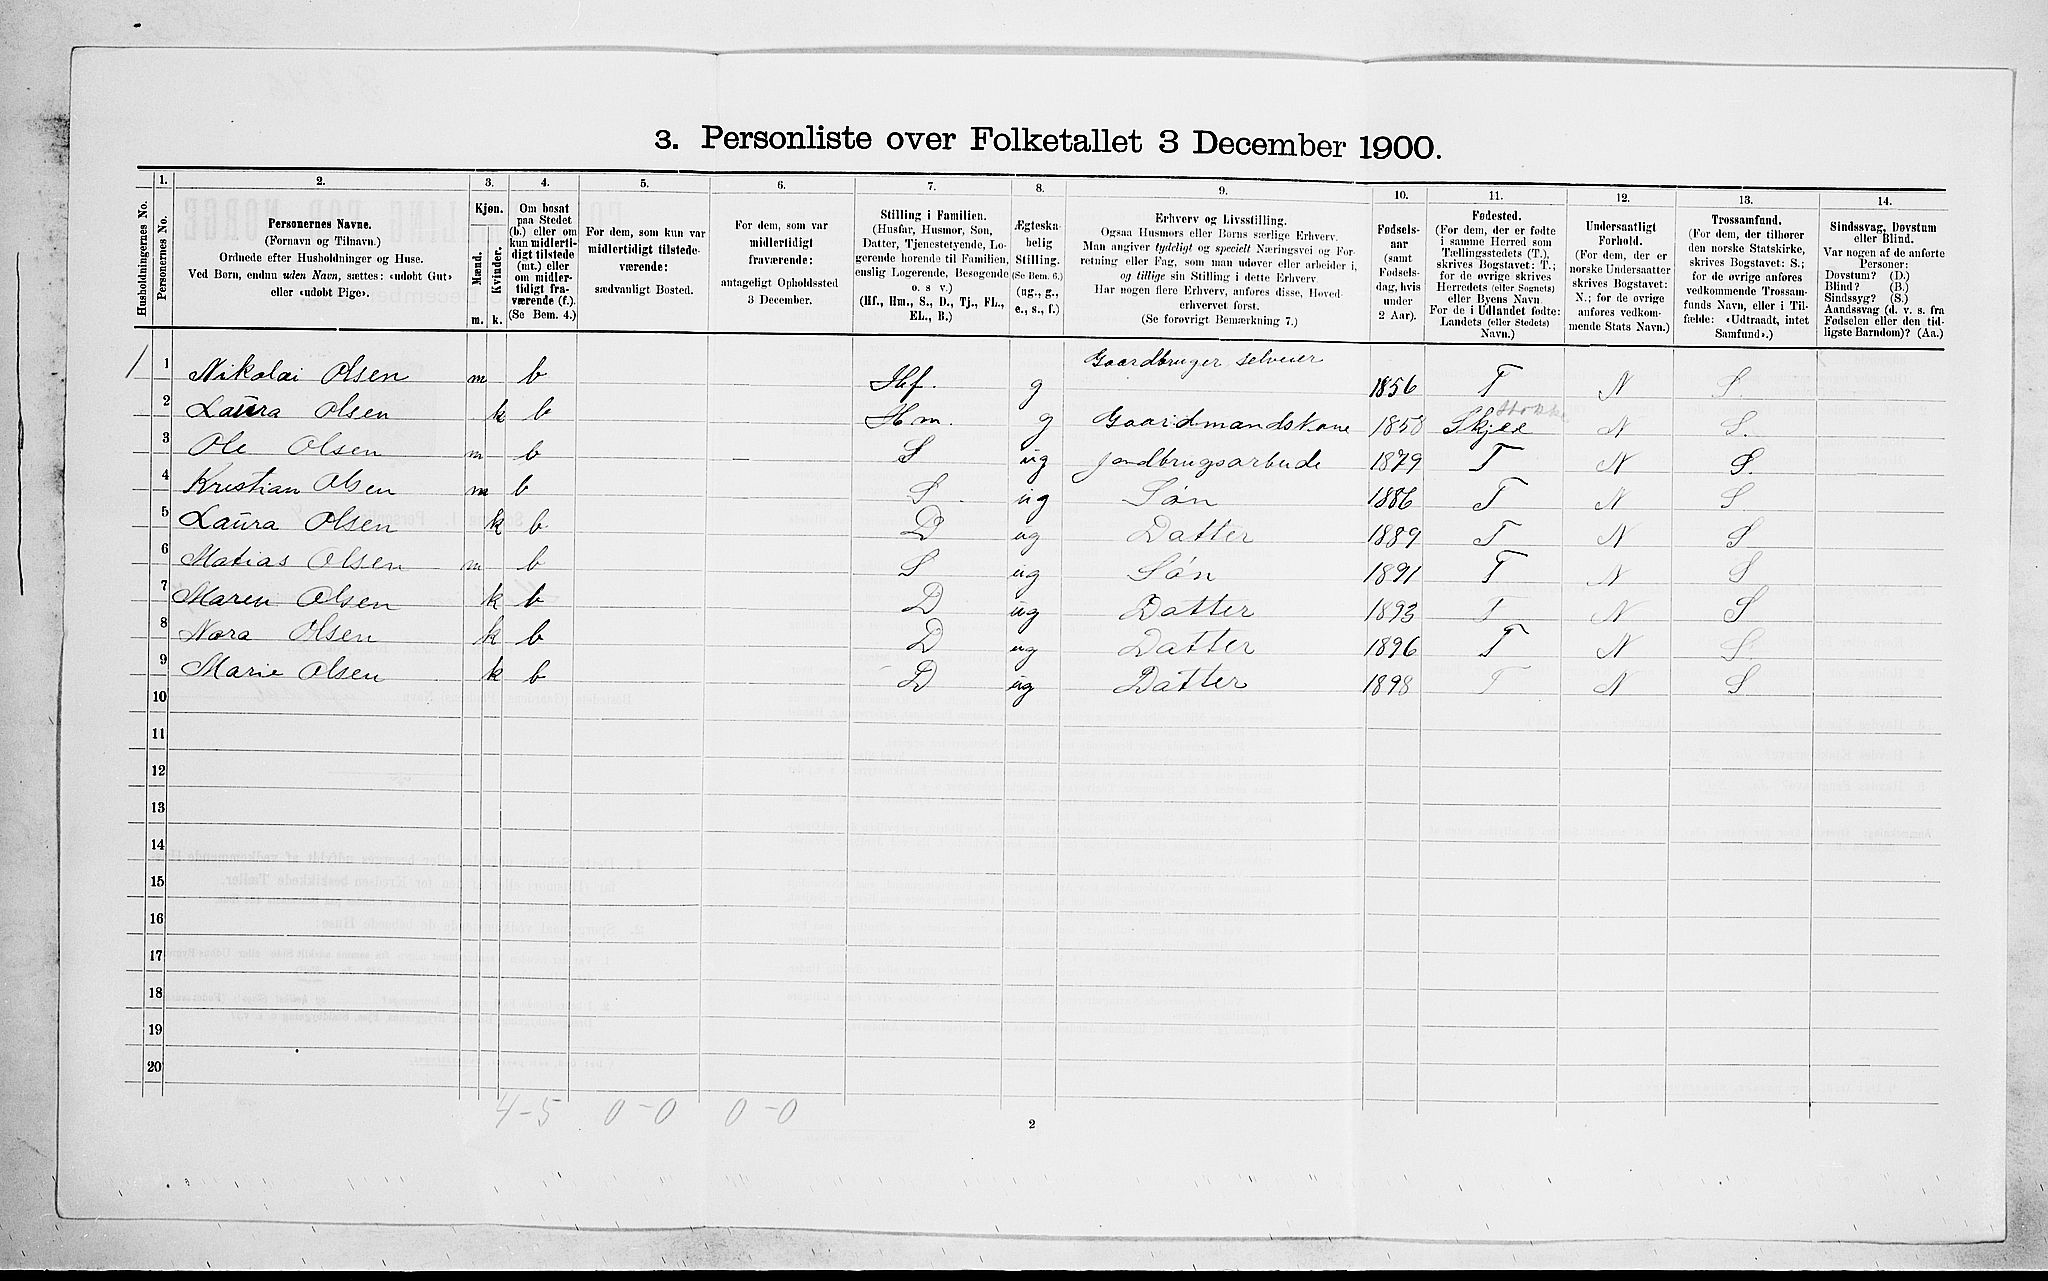 3. Personliste over Folketallet 3 December 1900.
1. 2. 3. 4. 5. 6. 7. 8. 9. 10. 11. 12. 13. 14.
Husholdningernes No.
Personernes No.
Personernes Navne.
(Fornavn og Tilnavn.)
Ordnede efter Husholdninger og Huse.
Ved Børn, endnu uden Navn, sættes: «udøbt Gut»
eller «udøbt Pige».
Kjøn.
Mænd.
Kvinder.
m. k.
Om bosat
paa Stedet
(b.) eller om
kun midlerti-
digt tilstede
(mt.) eller
om midler-
tidigt fra-
værende (f.).
(Se Bem. 4.)
For dem, som kun var
midlertidigt tilstede-
værende:
sædvanligt Bosted.
For dem, som var
midlertidigt
fraværende:
antageligt Opholdssted
3 December.
Stilling i Familien.
(Husfar, Husmor, Søn,
Datter, Tjenestetyende, Lo-
gerende hørende til Familien,
enslig Logerende, Besøgende
o. s v.)
(Hf., Hm., S., D., Tj., FL.,
EL., B.)
Ægteska-
belig
Stilling.
(Se Bem. 6.)
(ug., g.,
e., s., f.)
Erhverv og Livsstilling.
Ogsaa Husmors eller Børns særlige Erhverv.
Man angiver tydeligt og specielt Næringsvei og For-
retning eller Fag, som man udøver eller arbeider i,
og tillige sin Stilling i dette Erhverv.
Har nogen flere Erhverv, anføres disse, Hoved-
erhvervet først.
(Se forøvrigt Bemærkning 7.)
Fødsels-
aar
(samt
Fødsels-
dag, hvis
under
2 Aar).
Fødested.
(For dem, der er fødte
i samme Herred som
Tællingsstedets (T.),
skrives Bogstavet: T.;
for de øvrige skrives
Herredets (eller Sognets)
eller Byens Navn.
For de i Udlandet fødte:
Landets (eller Stedets)
Navn.)
Undersaatligt
Forhold.
(For dem, der er
norske Undersaatter
skrives Bogstavet:
N.; for de øvrige
anføres vedkom-
mende Stats Navn.)
Trossamfund.
(For dem, der tilhører
den norske Statskirke,
skrives Bogstavet: S.;
for de øvrige anføres
vedkommende Trossam-
funds Navn, eller i Til-
fælde: «Udtraadt, intet
Samfund».)
Sindssvag, Døvstum
eller Blind.
Var nogen af de anførte
Personer:
Døvstum? (D.)
Blind? (B.)
Sindssyg? (S.)
Aandssvag (d. v. s. fra
Fødselen eller den tid-
ligste Barndom)? (Aa.)
1 1 Nikolai Olsen m b Hf. g Gaardbruger selveier 1856 T N S.
2 Laura Olsen k b Hm. g Gaardmandskone 1858 Skjee Stokke N S.
3 Ole Olsen m b S ug Jordbrugsarbeide 1879 T N S.
4 Kristian Olsen m b S ug Søn 1886 T N S
5 Laura Olsen k b D ug Datter 1889 T N S
6 Matias Olsen m b S ug Søn 1891 T N S
7 Maren Olsen k b D ug Datter 1893 T N S
8 Nora Olsen k b D ug Datter 1896 T N S
9 Marie Olsen k b D ug Datter 1898 T N S
10
11
12
13
14
15
16
17
18
19
20
4-5 0-0 0-0
2